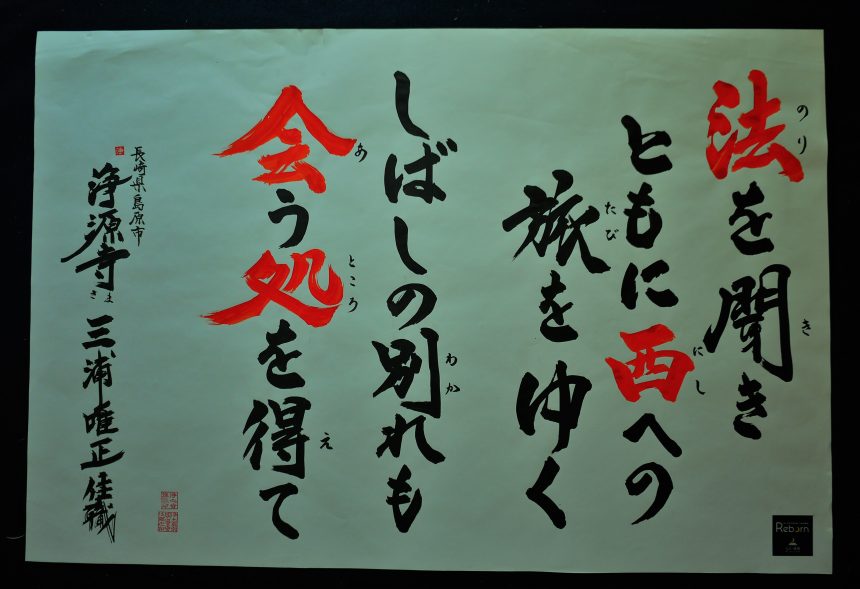 のり き
法を聞き
にし
ともに西への
たび
旅をゆく
わか
しばしの別れも
あ ところ え
会う処を得て
長崎県島原市
浄源寺さま 三浦唯正 住職
Reborn